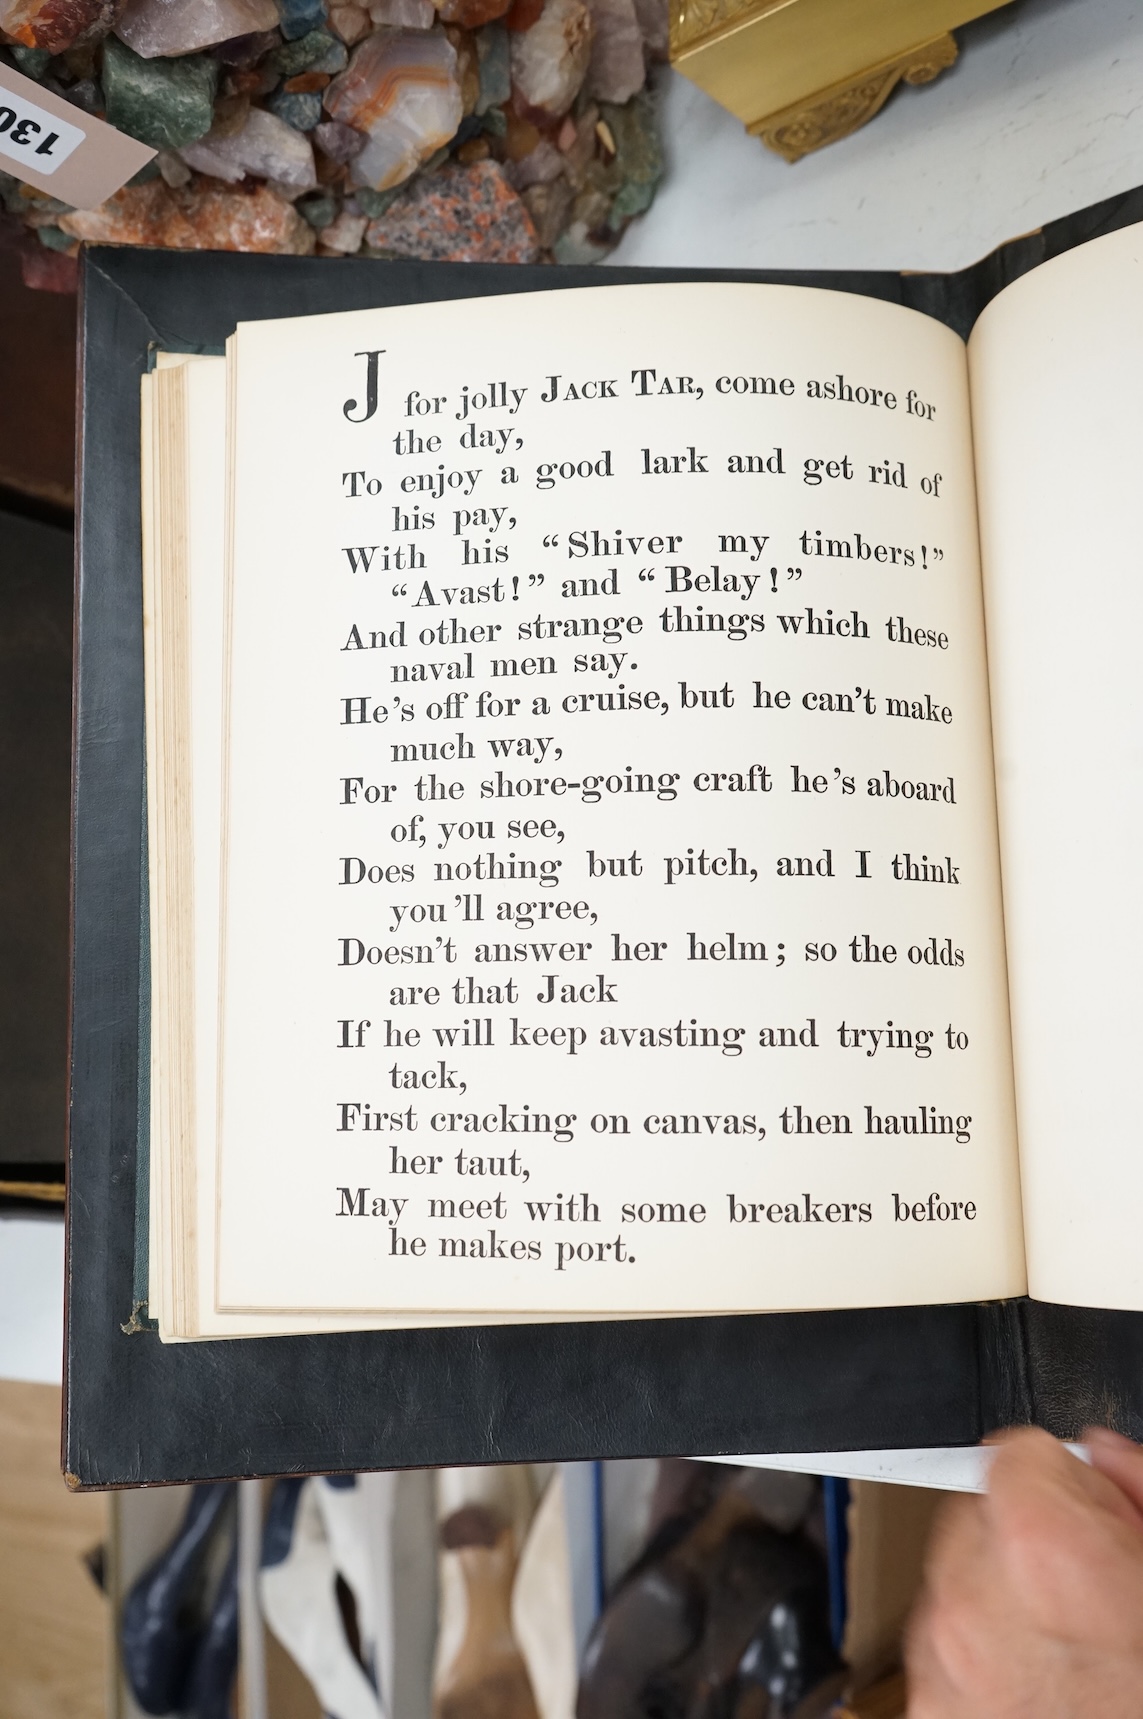 130
J for jolly JACK TAR, come ashore for
the day,
To enjoy a good lark and get rid of
his pay,
With his “Shiver my timbers!”
“Avast!” and “Belay!”
And other strange things which these
naval men say.
He’s off for a cruise, but he can’t make
much way,
For the shore-going craft he’s aboard
of, you see,
Does nothing but pitch, and I think
you’ll agree,
Doesn’t answer her helm; so the odds
are that Jack
If he will keep avasting and trying to
tack,
First cracking on canvas, then hauling
her taut,
May meet with some breakers before
he makes port.